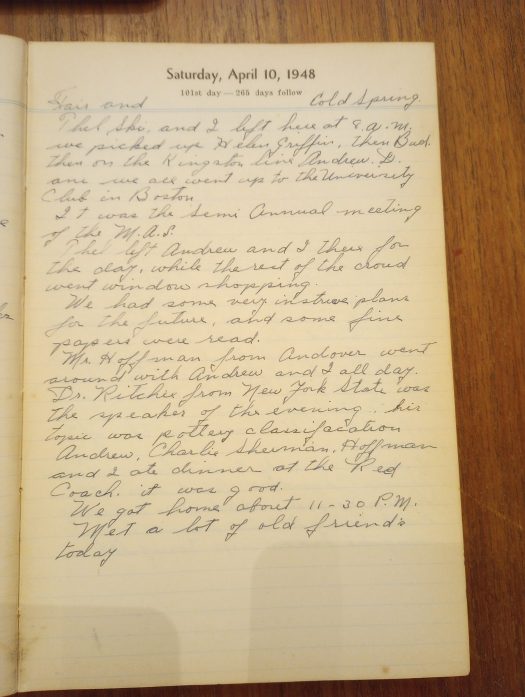 Saturday, April 10, 1948
101st day — 265 days follow
Fair and Cold Spring
Thel, Skii, and I left here at 8 a.m.
we picked up Helen Griffin, then Bud.
then on the Kingston line Andrew. L.
and we all went up to the University
Club in Boston
It was the Semi Annual meeting
of the M.A.S.
Thel left Andrew and I there for
the day, while the rest of the croud
went window shopping.
We had some very instruve plans
for the future, and some fine
papers were read.
Mr. Hoffman from Andover went
around with Andrew and I all day.
Dr. Ritchie from New York State was
the speaker of the evening.. his
topic was pottery classifacation
Andrew, Charlie Sherman, Hoffman
and I ate dinner at the Red
Coach. it was good.
We got home about 11-30 P.M.
Met a lot of old friends
today